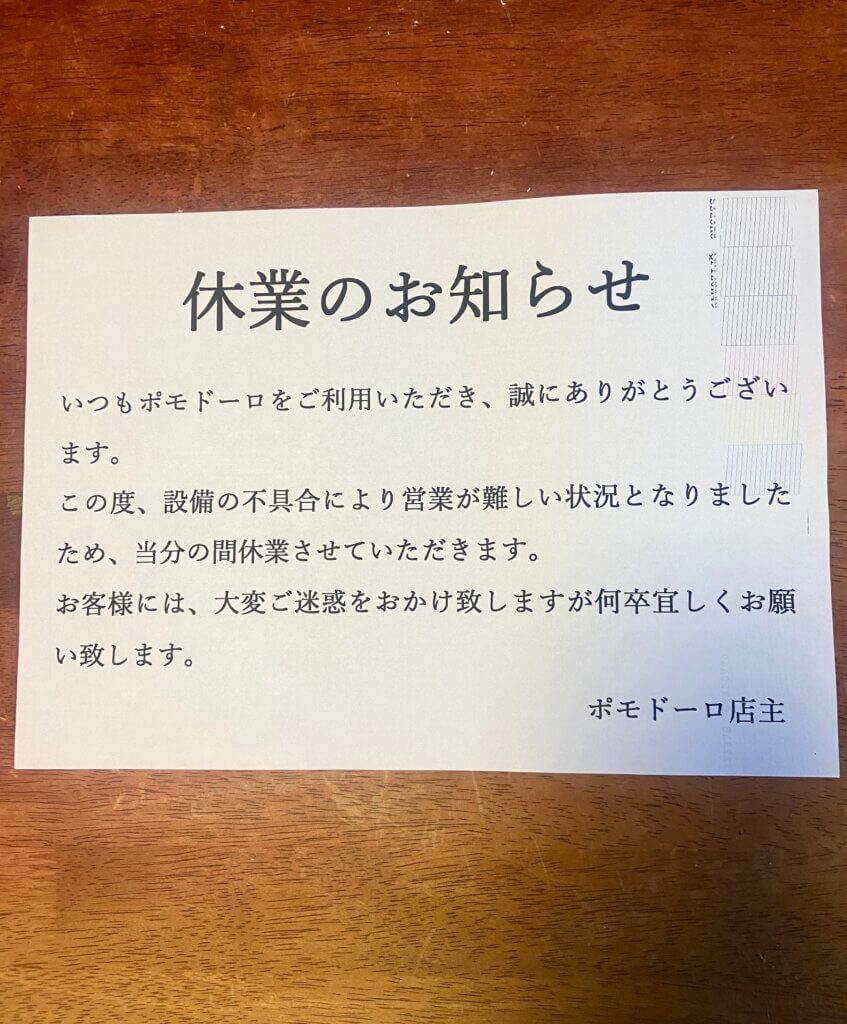 休業のお知らせ
いつもポモドーロをご利用いただき、誠にありがとうござい
ます。
この度、設備の不具合により営業が難しい状況となりました
ため、当分の間休業させていただきます。
お客様には、大変ご迷惑をおかけ致しますが何卒宜しくお願
い致します。
ポモドーロ店主